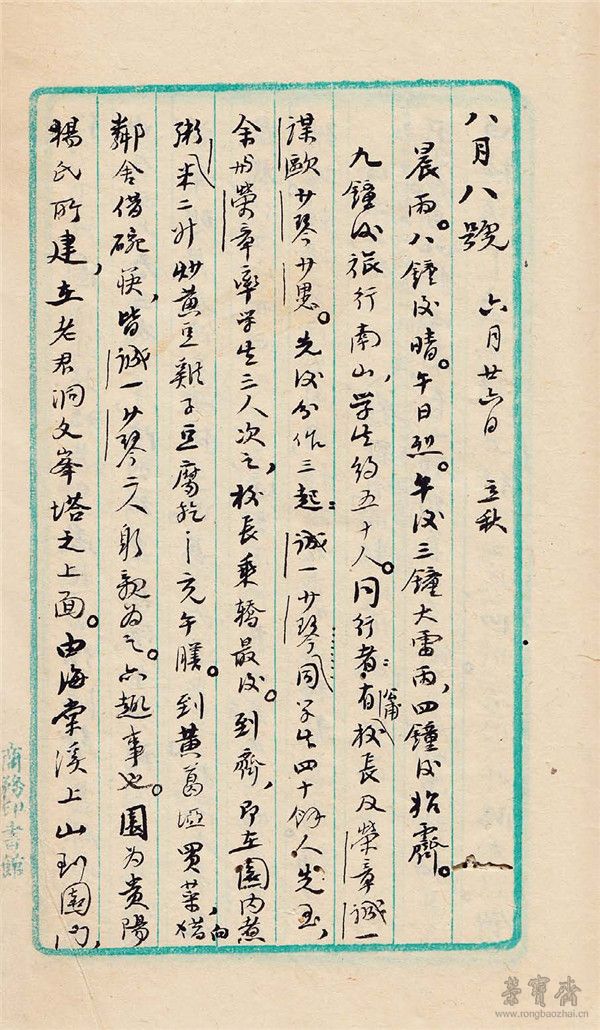 八月八號 六月廿六日 立秋
晨雨。八鐘後晴。午日烈。午後三鐘大雷雨，四鐘後始霽。
九鐘後旅行南山，学生約五十人。同行者：有蒲校長及榮章誠一
謀歐少琴少愚。先後分作三起：誠一少琴同学生四十餘人先至，
余與榮章率学生三人次之，校長乘轎最後。到齊，即在園內煮
粥，米二升炒黃豆雞子豆腐乾以充午膳。到黄葛埡買菜，向
鄰舍借碗筷，皆誠一少琴二人躬親為之。亦趣事也。園為貴陽
楊氏所建，在老君洞文峯塔之上面。由海棠溪上山到園門，
商務印書館
榮寶齋
www.rongbaozhai.cn